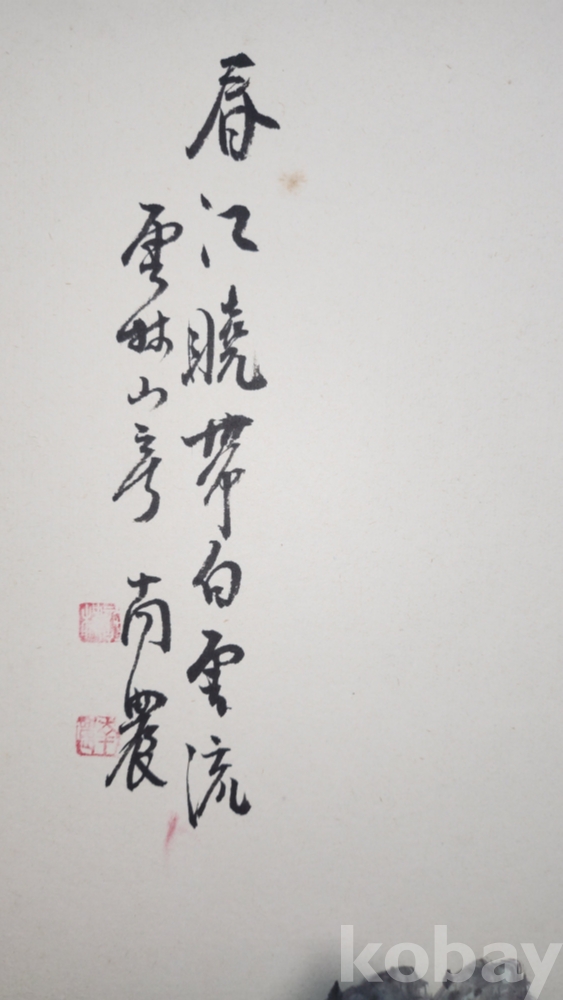 春江曉帶白雲流
雲林山房 南農
kobay